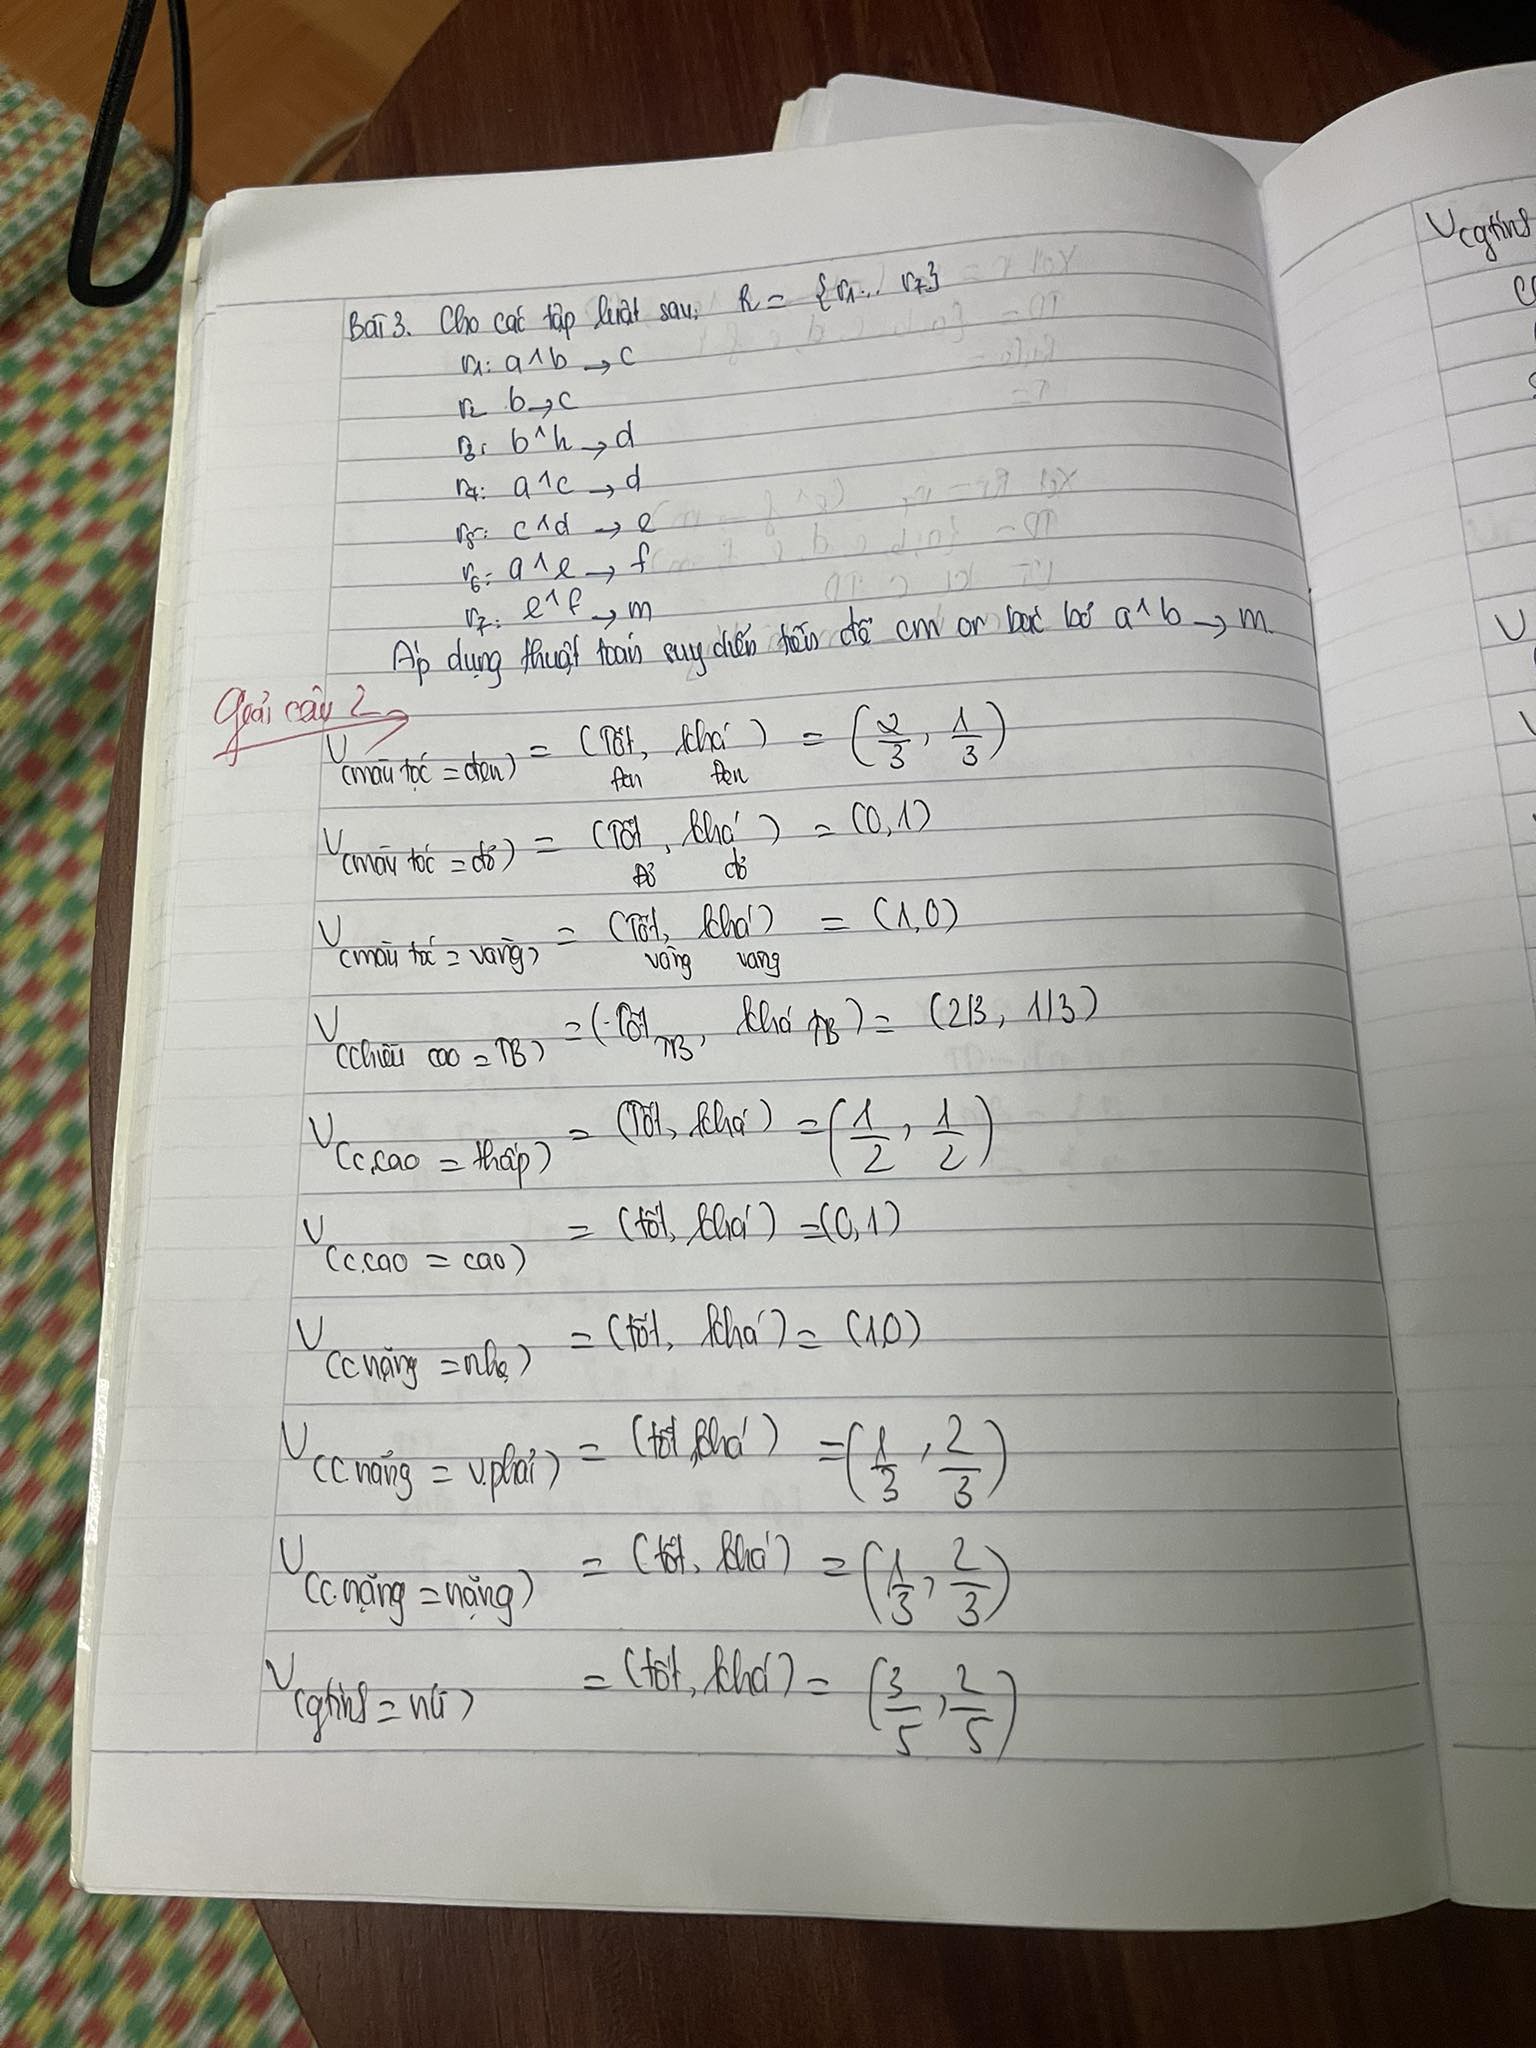 Bài 3. Cho các tập luật sau: R = {r1... r7}
r1: a^b → c
r2 b → c
r3: b^h → d
r4: a^c → d
r5: c^d → e
r6: a^e → f
r7: e^f → m
Áp dụng thuật toán suy diễn tiến để cm or bác bỏ a^b → m.
Giải câu 2
V(màu tóc = đen) = (Tốt đen, khá đen) = (2/3, 1/3)
V(màu tóc = đỏ) = (Tốt đỏ, khá đỏ) = (0,1)
V(màu tóc = vàng) = (Tốt vàng, khá vàng) = (1,0)
V(chiều cao = TB) = (Tốt TB, khá TB) = (2/3, 1/3)
V(c.cao = thấp) = (Tốt, khá) = (1/2, 1/2)
V(c.cao = cao) = (tốt, khá) = (0,1)
V(c.nặng = nhẹ) = (tốt, khá) = (1,0)
V(c.nặng = v.phải) = (tốt, khá) = (1/3, 2/3)
V(c.nặng = nặng) = (tốt, khá) = (1/3, 2/3)
V(gtính = nữ) = (tốt, khá) = (3/5, 2/5)
V(gtính
V